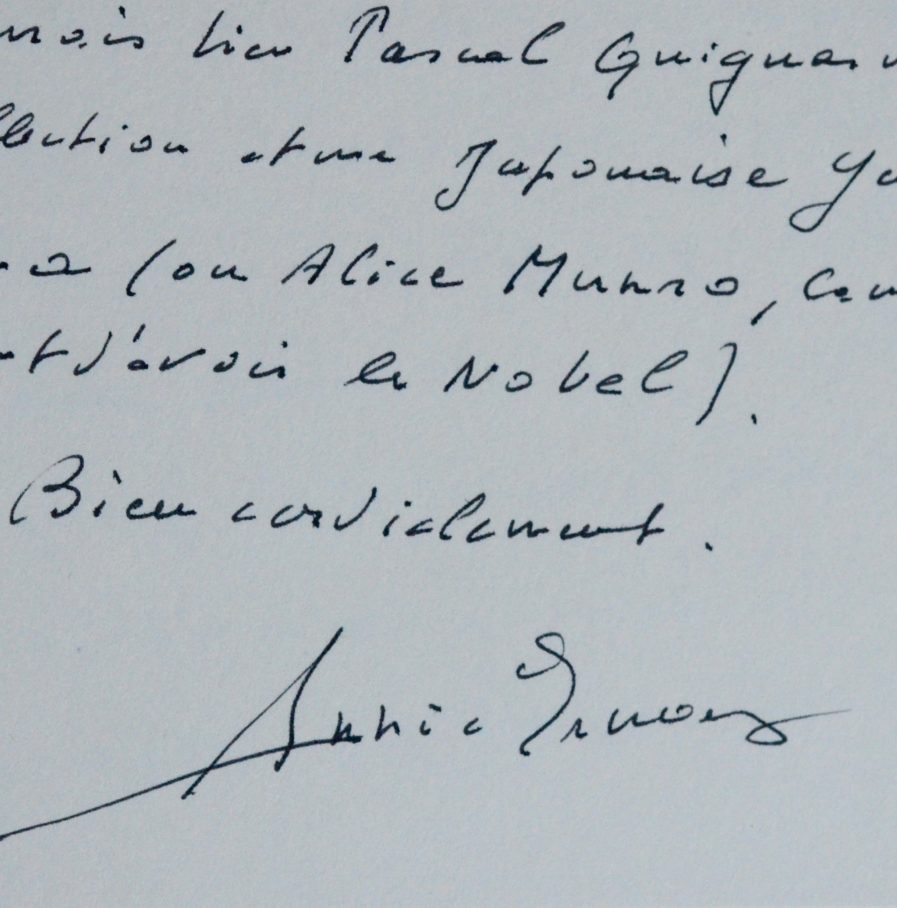 mais lieu Pascal Quignar
llection et une Japonaise Yo
a (ou Alice Munro, Can
nt d'avoir le Nobel).
Bien cordialement.
Annie Ernaux